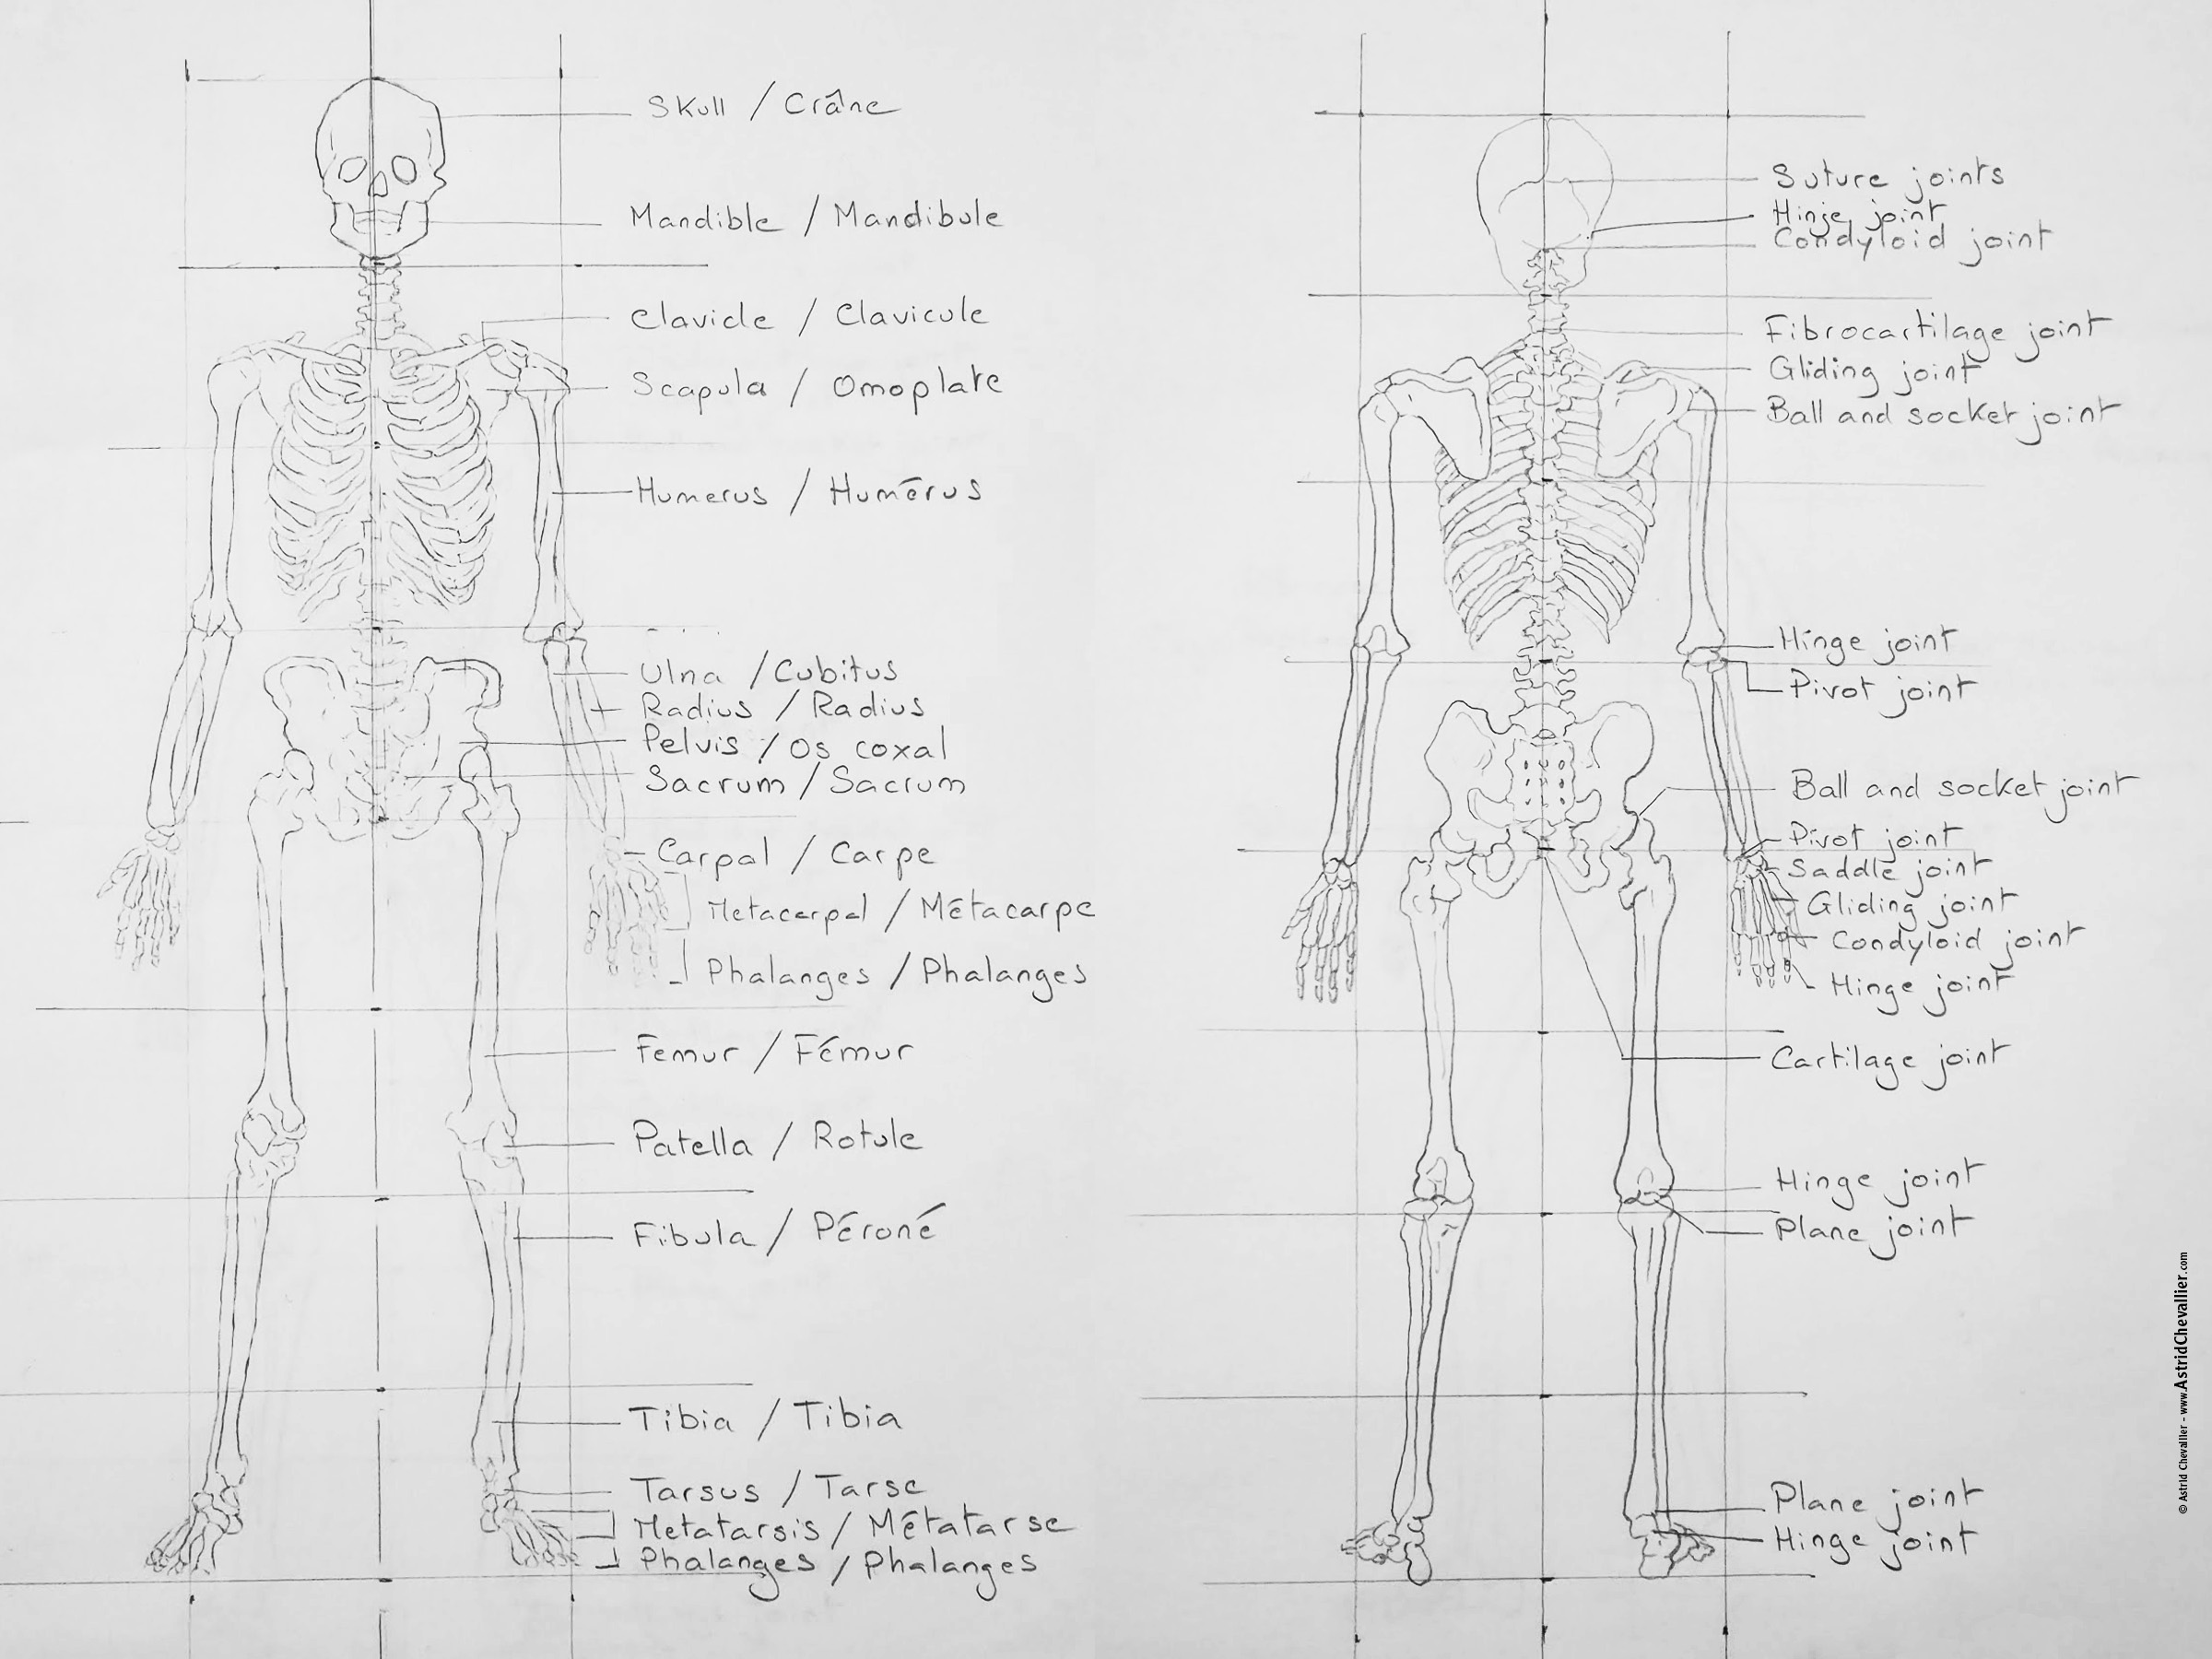 Skull / Crâne
Mandible / Mandibule
Clavicle / Clavicule
Scapula / Omoplate
Humerus / Humérus
Ulna / Cubitus
Radius / Radius
Pelvis / Os coxal
Sacrum / Sacrum
Carpal / Carpe
Metacarpal / Métacarpe
Phalanges / Phalanges
Femur / Fémur
Patella / Rotule
Fibula / Péroné
Tibia / Tibia
Tarsus / Tarse
Metatarsis / Métatarse
Phalanges / Phalanges
Suture joints
Hinje joint
Condyloid joint
Fibrocartilage joint
Gliding joint
Ball and socket joint
Hinge joint
Pivot joint
Ball and socket joint
Pivot joint
Saddle joint
Gliding joint
Condyloid joint
Hinge joint
Cartilage joint
Hinge joint
Plane joint
Plane joint
Hinge joint
© Astrid Chevallier - www.AstridChevallier.com